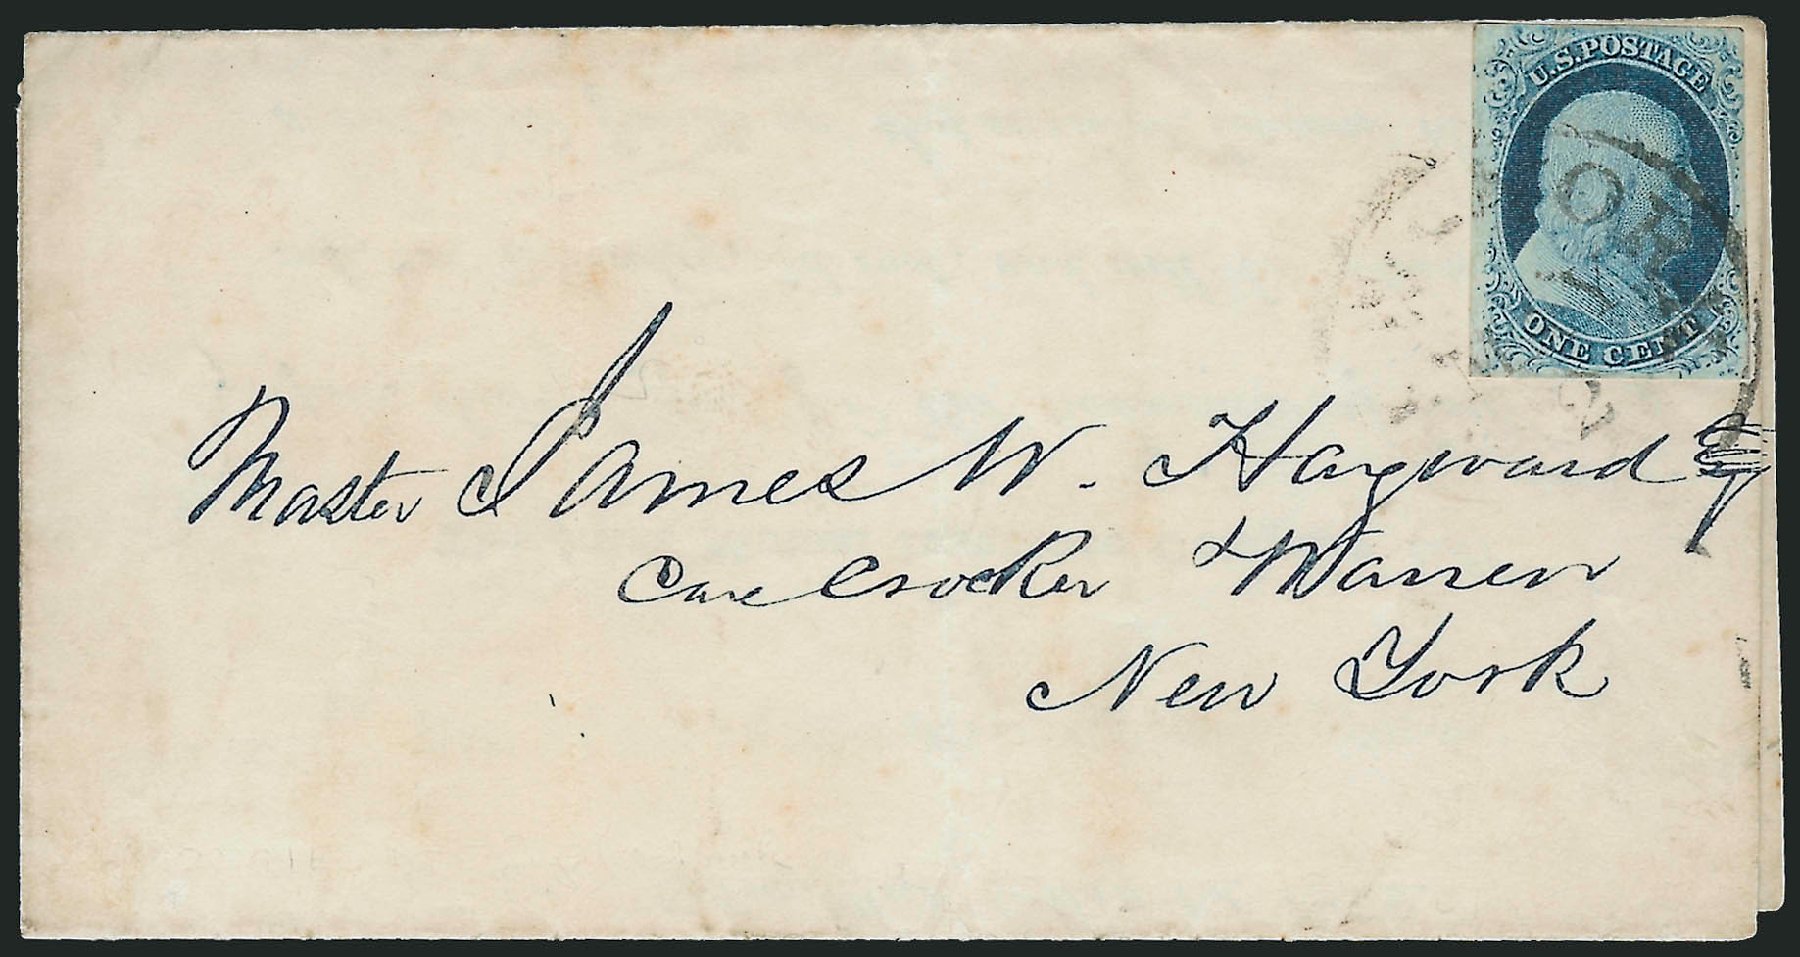 U.S. POSTAGE
ONE CENT
ORK
Master James W. Hayward
Care Crocker & Warren
New York